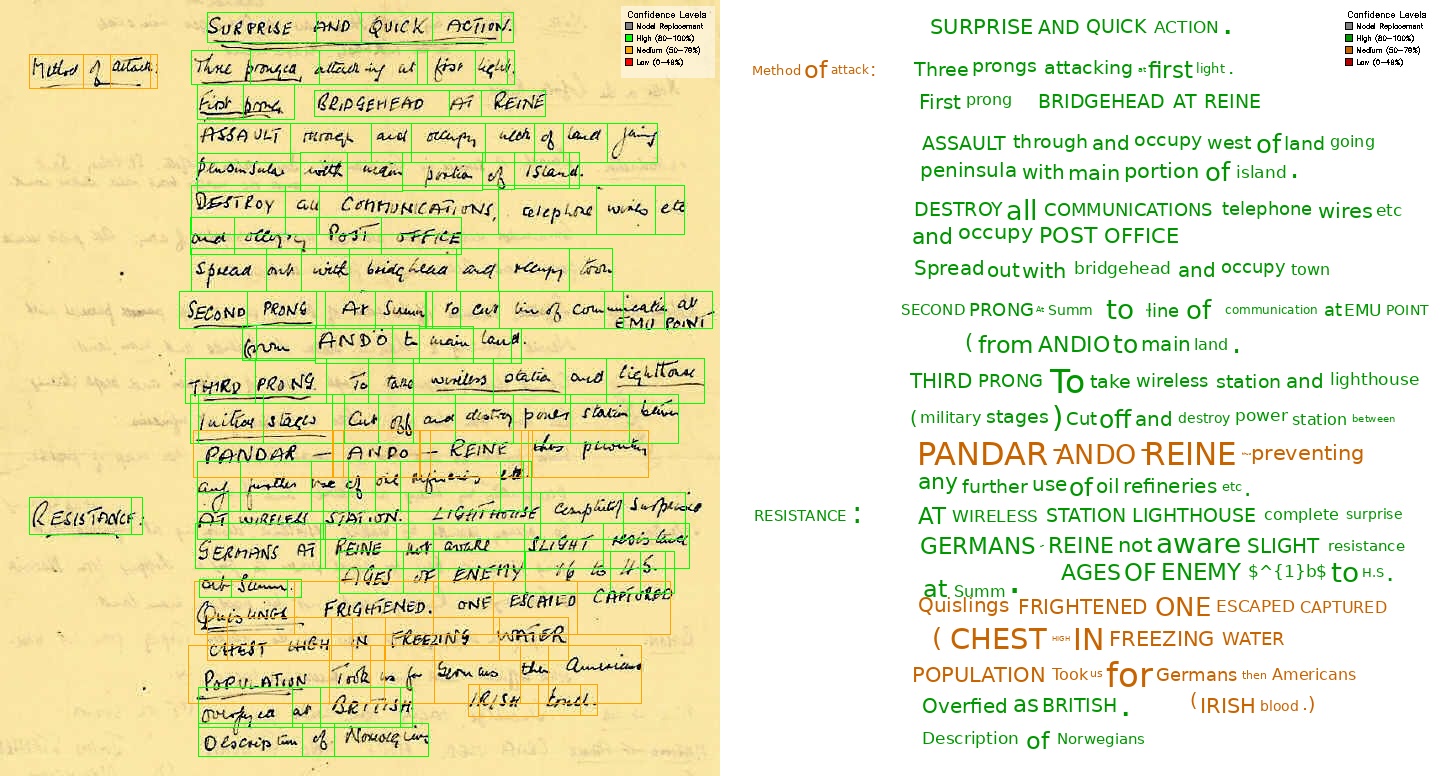 SURPRISE AND QUICK ACTION.
Method of attack:
Three pronged attacking at first light.
First prong BRIDGEHEAD AT REINE
ASSAULT through and occupy neck of land joing
peninsular with main portion of Island.
DESTROY all COMMUNICATIONS, telephone wires etc
and occupy POST OFFICE
Spread out with bridgehead and occupy town
SECOND PRONG At Sumn To cut line of communication at
EMU POINT
from ANDÖ to main land.
THIRD PRONG. To take wireless station and lighthouse
Initial stages Cut off and destroy power station between
PANDAR — ANDO — REINE thus preventing
any further use of oil refineries etc.
RESISTANCE:
AT WIRELESS STATION. LIGHTHOUSE complete surprise
GERMANS AT REINE not aware SLIGHT resistance
at Sumn. AGES OF ENEMY 16 to 45.
Quislings FRIGHTENED. ONE ESCAPED CAPTURED
CHEST HIGH IN FREEZING WATER
POPULATION Took us for Germans then Americans
overjoyed at BRITISH. IRISH
Description of Norwegians
Confidence Levels
Model Replacement
High (80-100%)
Medium (50-79%)
Low (0-49%)
SURPRISE AND QUICK ACTION .
Method of attack :
Three prongs attacking at first light .
First prong BRIDGEHEAD AT REINE
ASSAULT through and occupy west of land going
peninsula with main portion of island .
DESTROY all COMMUNICATIONS telephone wires etc
and occupy POST OFFICE
Spread out with bridgehead and occupy town
SECOND PRONG At Summ to line of communication at EMU POINT
( from ANDIO to main land .
THIRD PRONG To take wireless station and lighthouse
( military stages ) Cut off and destroy power station between
PANDAR - ANDO - REINE - preventing
any further use of oil refineries etc .
RESISTANCE :
AT WIRELESS STATION LIGHTHOUSE complete surprise
GERMANS - REINE not aware SLIGHT resistance
at Summ . AGES OF ENEMY $^{1}b$ to H.S .
Quislings FRIGHTENED ONE ESCAPED CAPTURED
( CHEST HIGH IN FREEZING WATER
POPULATION Took us for Germans then Americans
Overfied as BRITISH . ( IRISH blood . )
Description of Norwegians
Confidence Levels
Model Replacement
High (80-100%)
Medium (50-79%)
Low (0-49%)